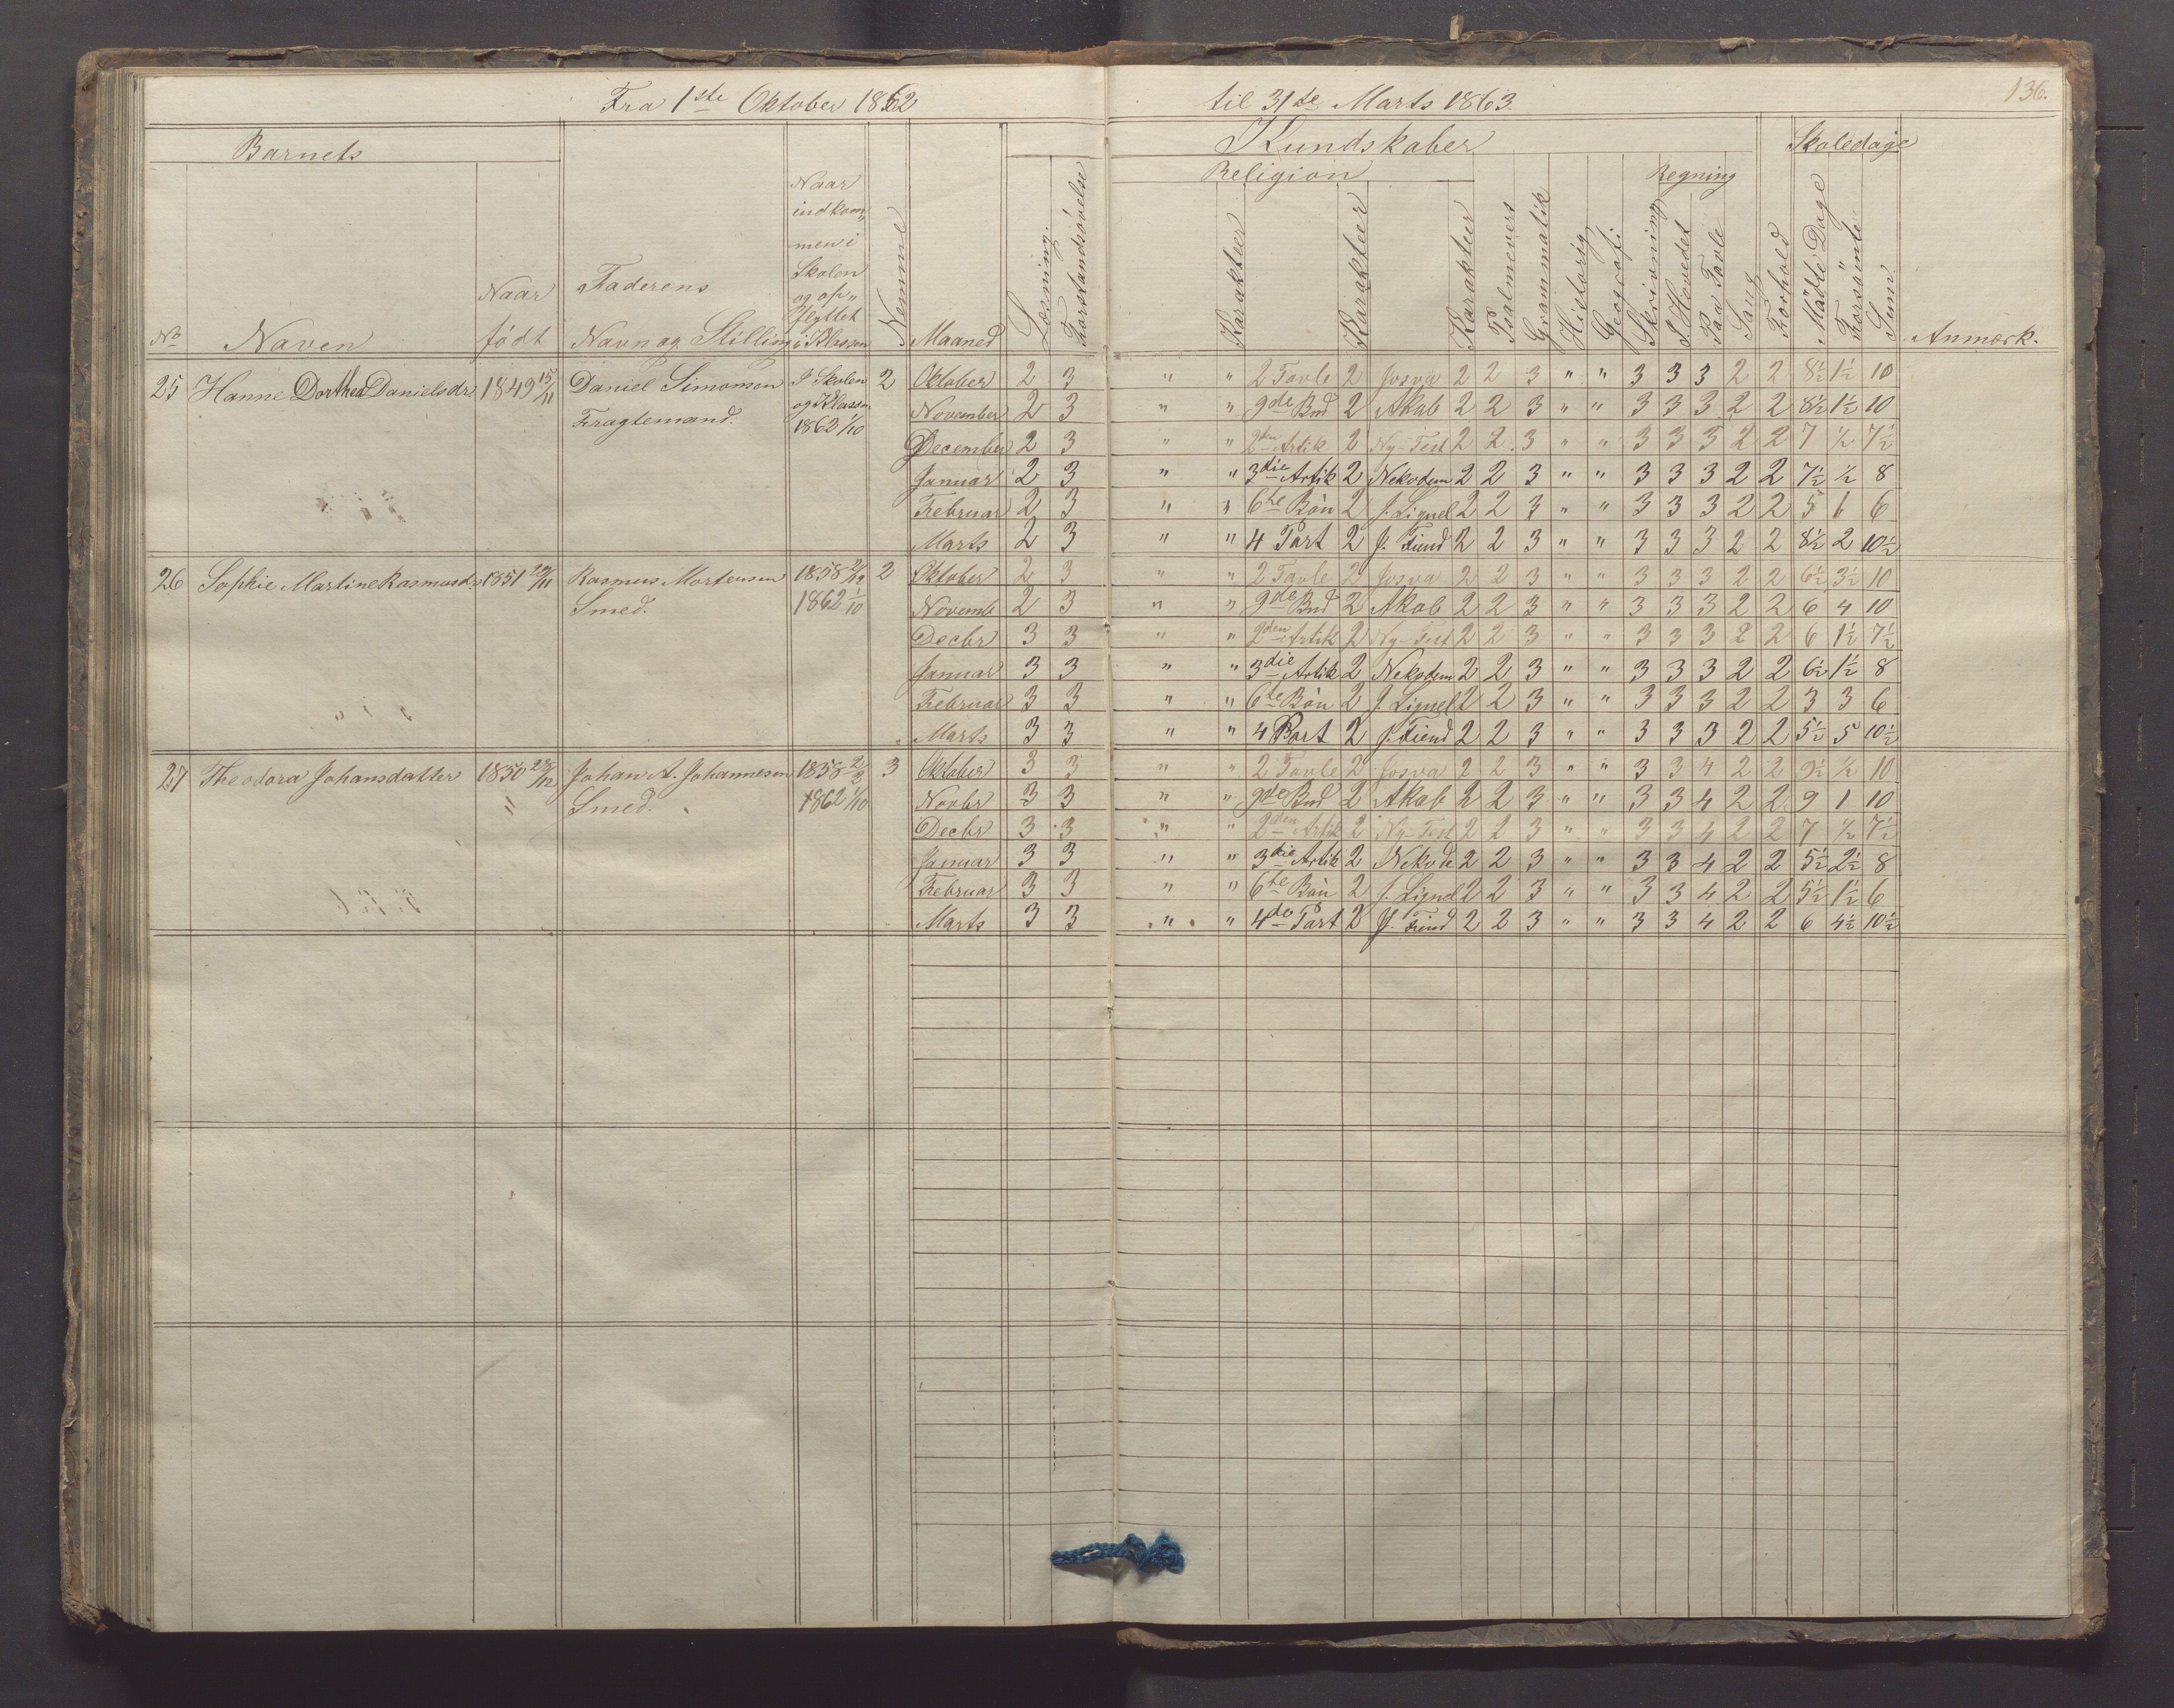 Fra 1ste Oktober 1862 til 31te Marts 1863. 136.
Barnets Kundskaber Skoledage
Religion Regning
No Naven Naar født Faderens Navn og Stilling Naar indkommen i Skolen og opflyttet i Klassen Nemme Maaned Læsning. Forstandsøvelse Karakteer Karakteer Karakteer Psalmevers Grammatik Historie Geografi Skrivning I Hovedet Paa Tavle Sang Forhold Mødte Dage Forsømte Sum Anmærk.
25 Hanne Dorthea Danielsdr. 1849 15/11 Daniel Simonsen I Skolen 2 Oktober 2 3 " " 2 Tavle 2 Josva 2 2 3 " " 3 3 3 2 2 8½ 1½ 10
Fragtemand. og Klassen November 2 3 " " 9de Bud 2 Akab 2 2 3 " " 3 3 3 2 2 8½ 1½ 10
1862 1/10 December 2 3 " " 2den Artik 2 Ny-Test 2 2 3 " " 3 3 3 2 2 7 ½ 7½
Januar 2 3 " " 3die Artik 2 Nekodem 2 2 3 " " 3 3 3 2 2 7½ ½ 8
Februar 2 3 " " 6te Bøn 2 J. Lignel 2 2 3 " " 3 3 3 2 2 5 1 6
Marts 2 3 " " 4 Part 2 J. Fiend 2 2 3 " " 3 3 3 2 2 8½ 2 10½
26 Sophie Martine Rasmusdr. 1851 Rasmus Mortensen 1858 2 Oktober 2 3 " " 2 Tavle 2 Josva 2 2 3 " " 3 3 3 2 2 6½ 3½ 10
Smed. 1862 1/10 Novembe 2 3 " " 9de Bud 2 Akab 2 2 3 " " 3 3 3 2 2 6 4 10
Decbr 3 3 " " 2den Artik 2 Ny-Test 2 2 3 " " 3 3 3 2 2 6 1½ 7½
Januar 3 3 " " 3die Artik 2 Nekodem 2 2 3 " " 3 3 3 2 2 6½ 1½ 8
Februar 3 3 " " 6te Bøn 2 J. Lignel 2 2 3 " " 3 3 3 2 2 3 3 6
Marts 3 3 " " 4 Part 2 J. Fiend 2 2 3 " " 3 3 3 2 2 5½ 5 10½
27 Theodora Johansdatter 1850 28/12 Johan A. Johannesen 1858 3 Oktober 3 3 " " 2 Tavle 2 Josva 2 2 3 " " 3 3 4 2 2 9½ ½ 10
" Smed. 1862 1/10 Novbr 3 3 " " 9de Bud 2 Akab 2 2 3 " " 3 3 4 2 2 9 1 10
Decbr 3 3 " " 2den Artik 2 Ny-Test 2 2 3 " " 3 3 4 2 2 7 ½ 7½
Januar 3 3 " " 3die Artik 2 Nekode 2 2 3 " " 3 3 4 2 2 5½ 2½ 8
Februar 3 3 " " 6te Bøn 2 J. Lignel 2 2 3 " " 3 3 4 2 2 5½ 1½ 6
Marts 3 3 " " 4de Part 2 J. Fiend 2 2 3 " " 3 3 4 2 2 6 4½ 10½